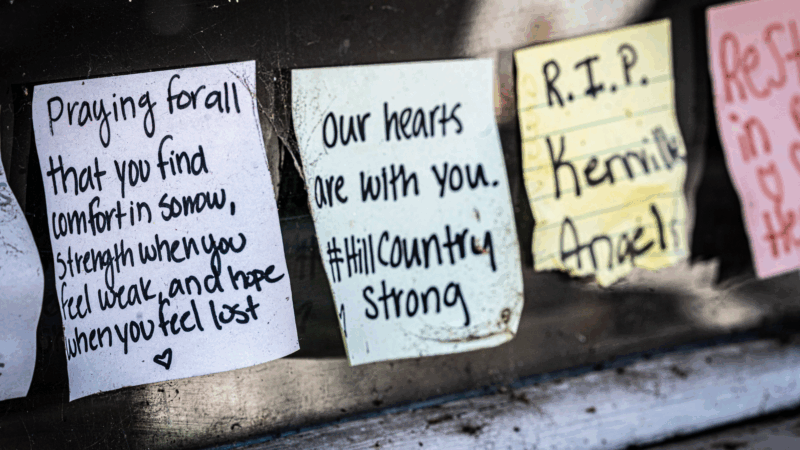 Praying for all
that you find
comfort in sorrow,
strength when you
feel weak, and hope
when you feel lost
♡
Our hearts
are with you.
#HillCountry
Strong
R.I.P.
Kerrville
Angels
Rest
in